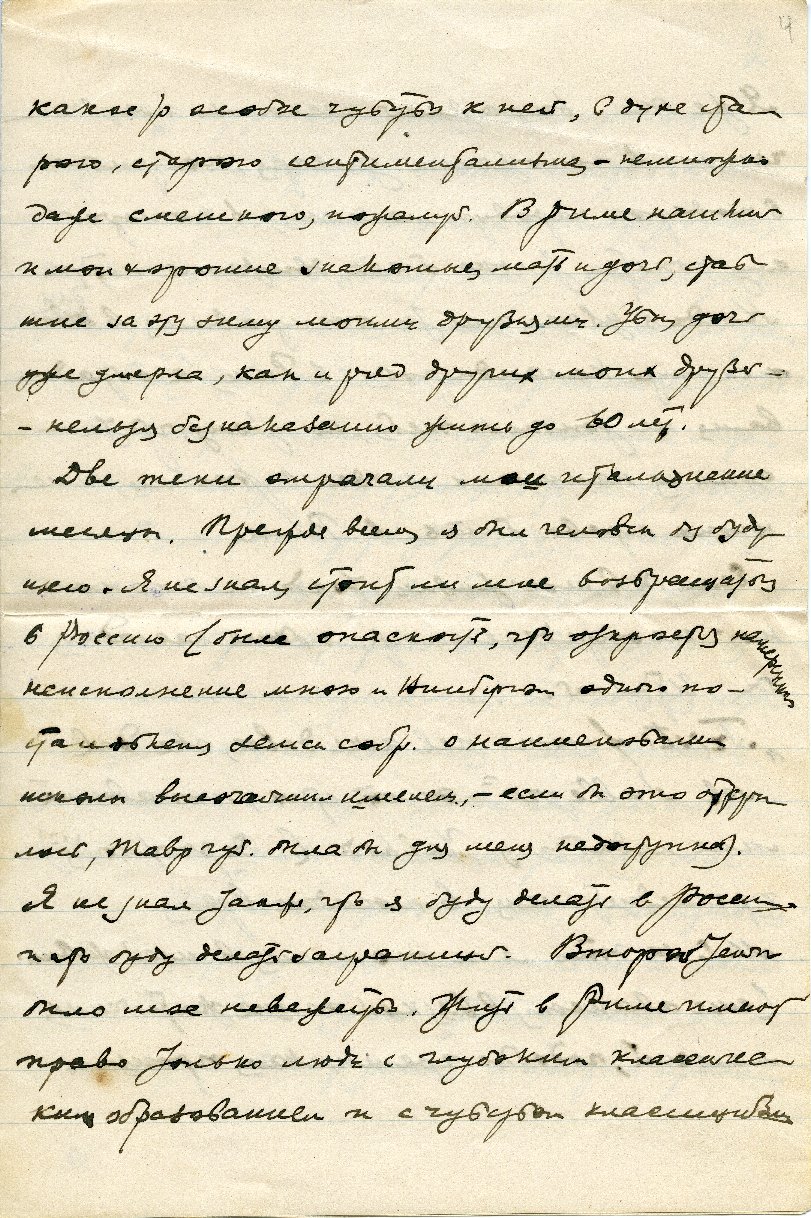 какое то особое чувство к ней, в духе ста
рого, старого сентиментализма – немножко
даже смешного, пожалуй. В Риме нашлись
и мои хорошие знакомые, мать и дочь, став
шие за эту зиму моими друзьями. Увы, дочь
уже умерла, как и ряд других моих друзей –
– нельзя безнаказанно жить до 60 лет.
Две тени омрачали мои итальянские
месяцы. Прежде всего, я был человек без буду
щего. Я не знал, стоит ли мне возвращаться
в Россию (была опасность, что откроется намеренное
неисполнение мною и одного по–
становления земск собр. о наименовании
школы высочайшим именем, – если бы это откры
лось, Тавр губ. была бы для меня недоступна).
Я не знал также, что я буду делать в России
и что буду делать заграницей. Второй тенью
было мое невежество. Жить в Риме имеют
право только люди с глубоким классичес
ким образованием и с чувством классицизма